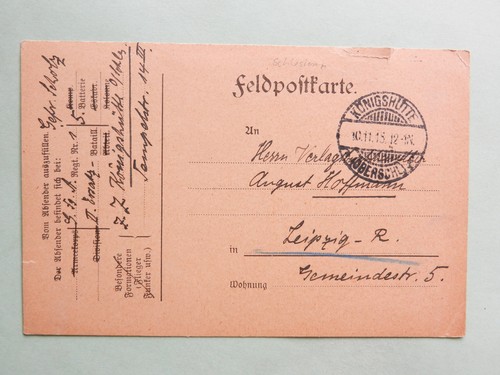 Schlesien
Feldpostkarte.
KÖNIGSHÜTTE
10.11.15. 12-1N.
(OBERSCHL.)
An
Herrn Verlags
August Hoffmann
in Leipzig-R.
Gemeindestr. 5.
Wohnung
Vom Absender auszufüllen.
Der Absender befindet sich bei:
Gefr. Scholz
Armeekorps
Division
Regt. Nr. 1
II. Ersatz- Bataill.
Komp.
5. Batterie
Eskadr.
Abteil.
Kolonne
Besondere
Formationen
(Flieger,
Funker usw.)
z. Z. Königshütte O/Schles
Tempelstr. 14 III